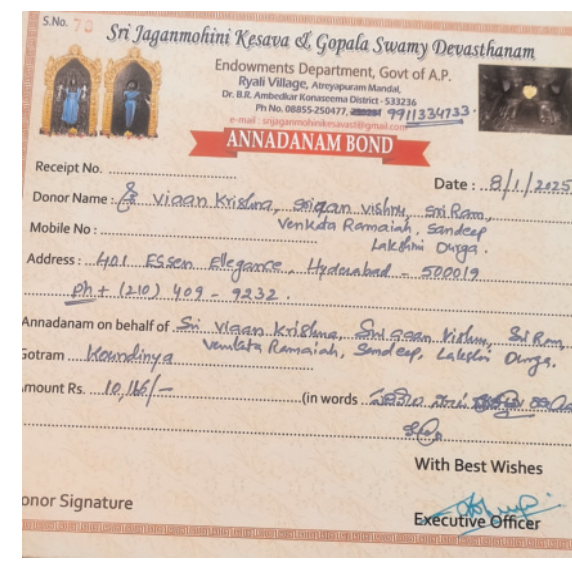 S.No. 73
Sri Jaganmohini Kesava & Gopala Swamy Devasthanam
Endowments Department, Govt of A.P.
Ryali Village, Atreyapuram Mandal,
Dr. B.R. Ambedkar Konaseema District - 533236
Ph No. 08855-250477, 9911334733.
e-mail : srijaganmohinikesavast@gmail.com
ANNADANAM BOND
Receipt No.
Date : 8/1/2025
Donor Name : Viaan Krishna, vishnu, Sri Ram,
Venkata Ramaiah, Sandeep
Mobile No :
Lakshmi Durga.
Address : 401 Essem Elegance, Hyderabad - 500019
Ph + (210) 409 - 9232.
Annadanam on behalf of Sri Viaan Krishna, Vishnu, Sri Ram,
Venkata Ramaiah, Sandeep, Lakshmi Durga.
Gotram Koundinya
Amount Rs. 10,116/- (in words
With Best Wishes
onor Signature
Executive Officer